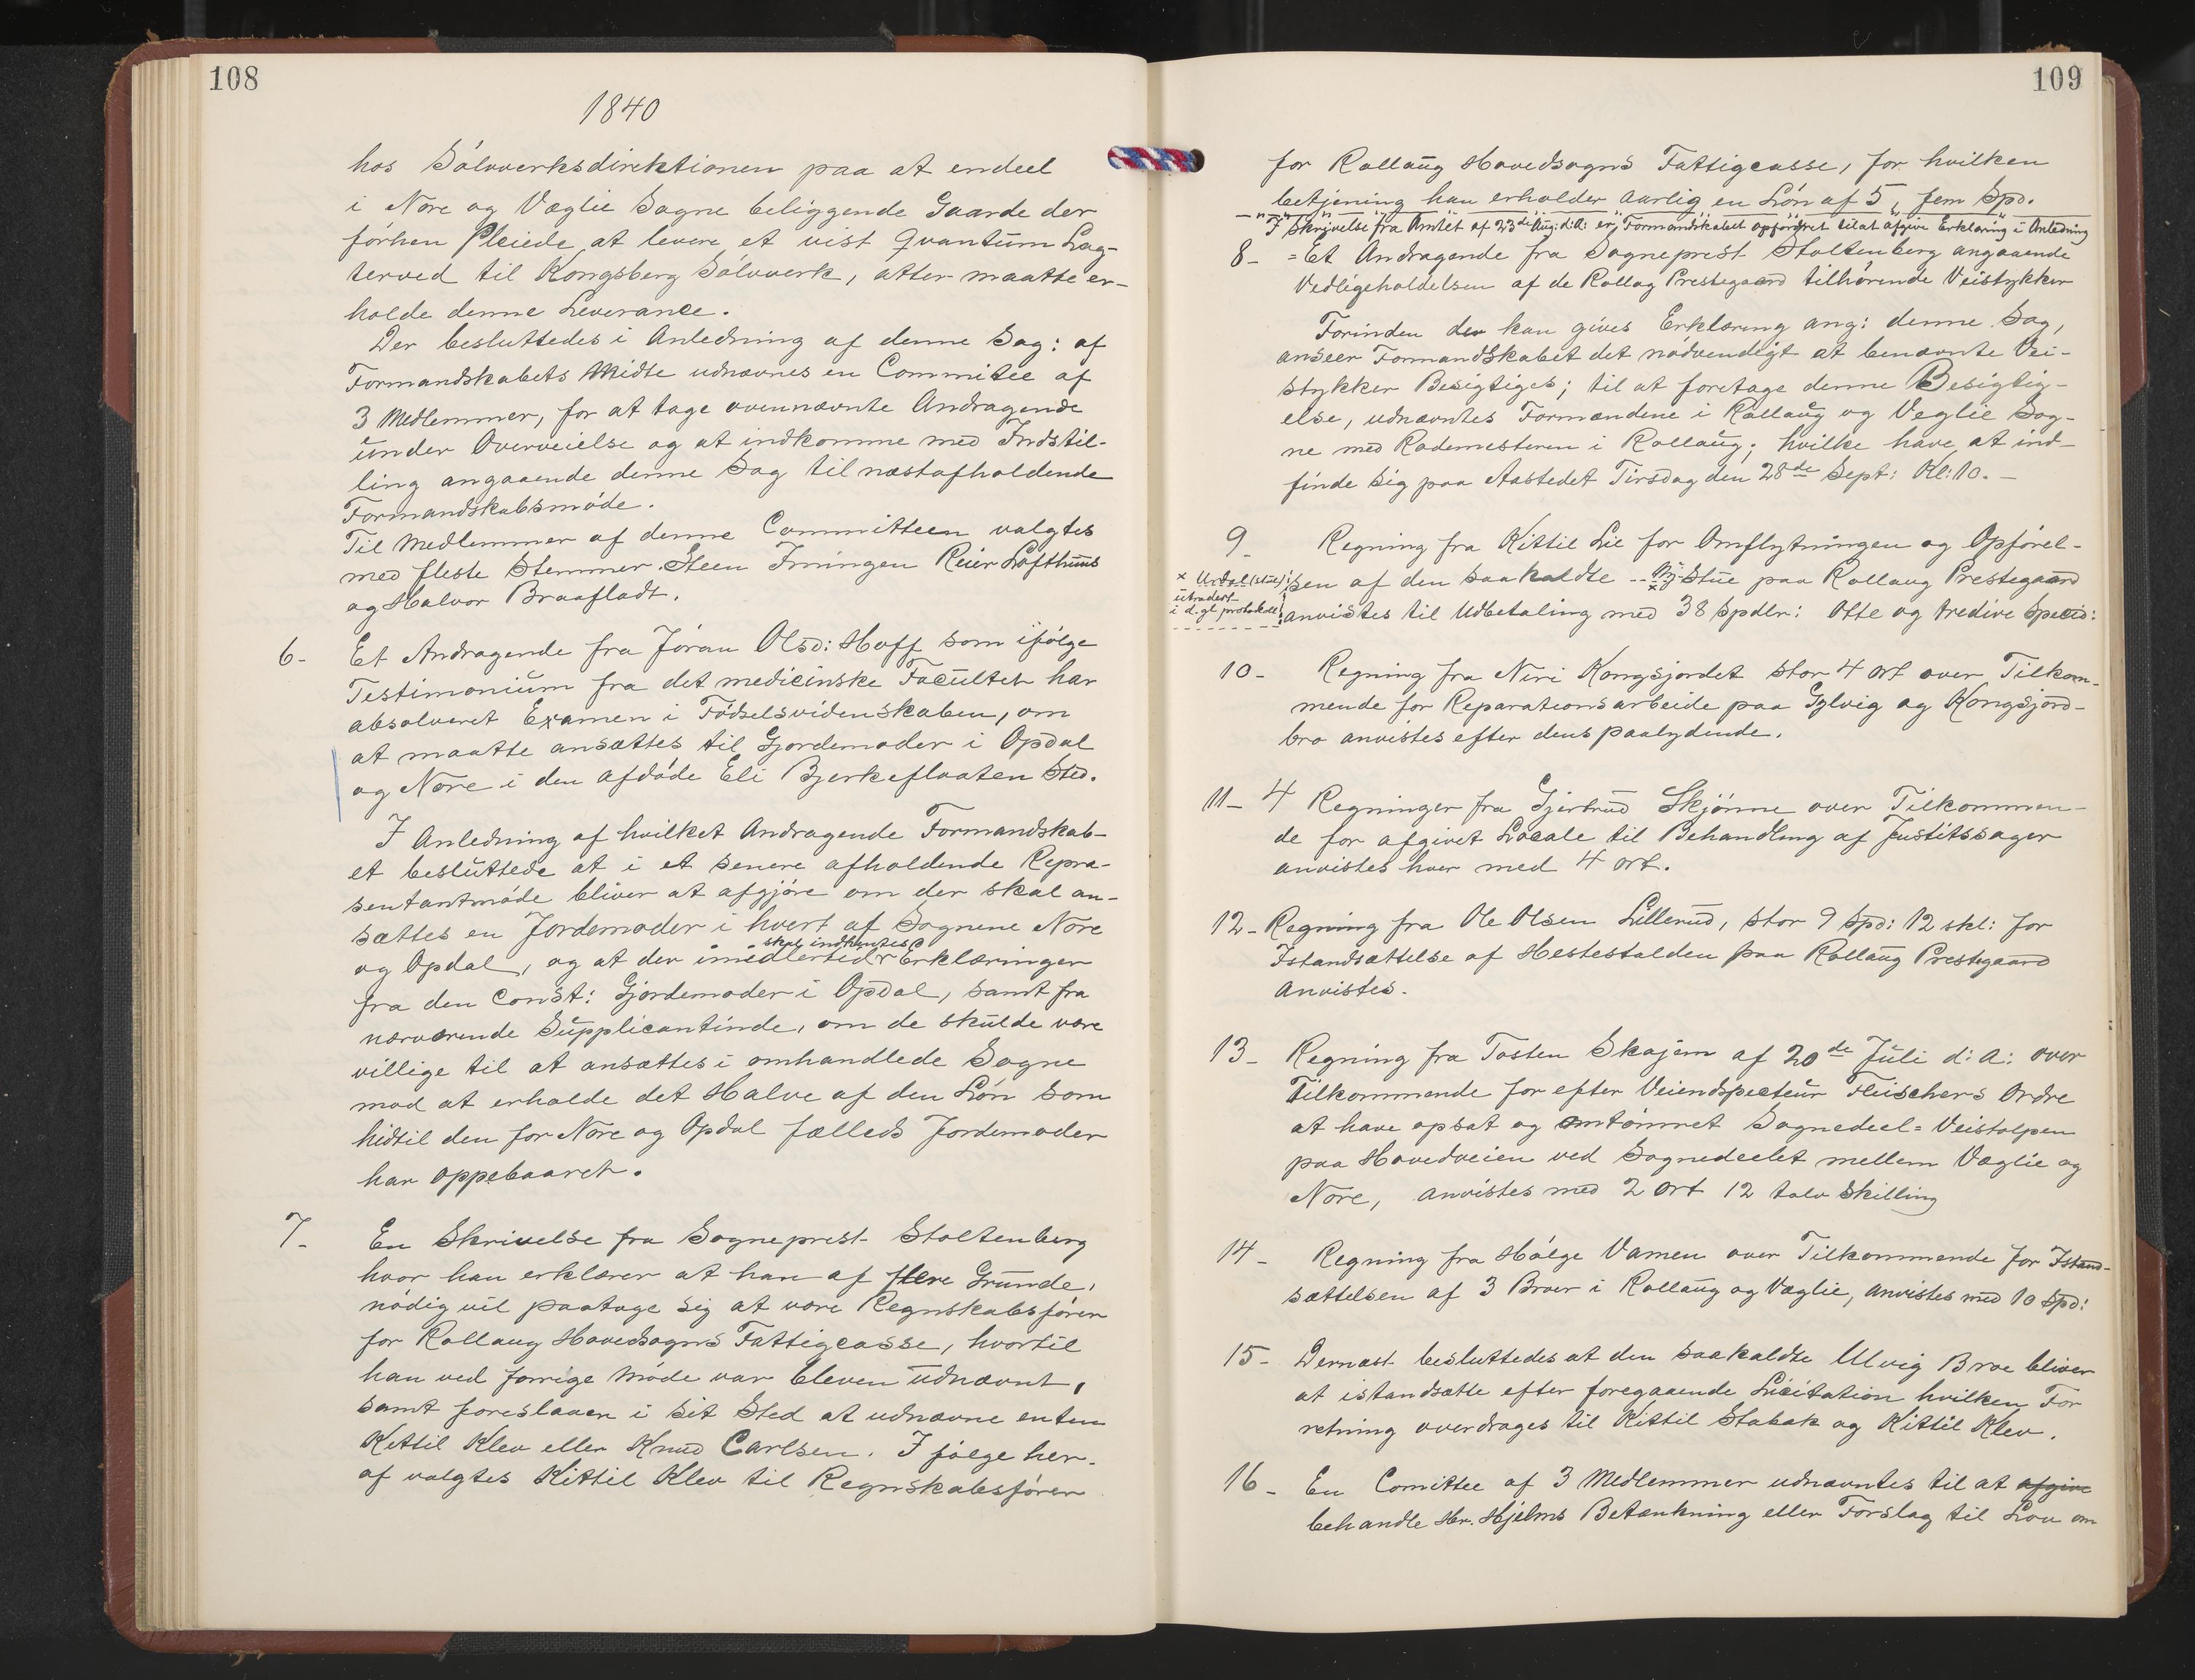 108
1840
hos Sölvverksdirektionen paa at endeel
i Nore og Væglie Sogne beliggende Gaarde der
förhen Pleiede at levere et vist Qvantum Lag-
terved til Kongsberg Sölvverk, atter maatte er-
holde denne Leverance.
Der besluttedes i Anledning af denne Sag: af
Formandskabets Midte udnævnes en Commitee af
3 Medlemmer, for at tage ovennævnte Andragende
under Overveielse og at indkomme med Indstil-
ling angaaende denne Sag til næstafholdende
Formandskabsmöde.
Til Medlemmer af denne Committeen valgtes
med fleste Stemmer. Steen Irningen Reier Lofthuus
og Halvor Braafladt.
6- Et Andragende fra Jöran Olsd: Hoff som ifölge
Testimonium fra det medicinske Facultet har
absolveret Examen i Födselsvidenskaben, om
at maatte ansættes til Gjordemoder i Opdal
og Nore i den afdöde Eli Bjerkeflaaten Sted.
I Anledning af hvilket Andragende Formandskab-
et besluttede at i et senere afholdende Repræ-
sentantmöde bliver at afgjöre om der skal an-
sættes en Jordemoder i hvert af Sognene Nore
skal indhentes
og Opdal, og at der imidlertid Erklæringer
fra den Const: Gjordemoder i Opdal, samt fra
nærværende Supplicantinde, om de skulde være
villige til at ansættes i omhandlede Sogne
mod at erholde det Halve af den Lön som
hidtil den for Nore og Opdal fælleds Jordemoder
har oppebaaret.
7- En Skrivelse fra Sogneprest Stoltenberg
hvor han erklærer at han af flere Grunde,
nödig vil paatage sig at være Regnskabsförer
for Rollaug Hovedsogns Fattigcasse, hvortil
han ved forrige Möde var bleven udnævnt,
samt foreslaaer i sit Sted at udnævne enten
Kittil Klev eller Knud Carlsen. I fölge her-
af valgtes Kittil Klev til Regnskabsförer
109
for Rollaug Hovedsogns Fattigcasse, for hvilken
betjening han erholder aarlig en Lön af 5, fem Spd.
I Skrivelse fra Amtet af 23de Aug: d: A: er Formandskabet opfordret til at afgive Erklæring i Anledning
8- = Et Andragende fra Sogneprest Stoltenberg angaaende
Vedligeholdelsen af de Rollag Prestegaard tilhörende Veistykker
Forinden der kan gives Erklæring ang: denne Sag,
anseer Formandskabet det nödvendigt at benævnte Vei-
stykker Besigtiges; til at foretage denne Besigtig-
else, udnævntes Formændene i Rollaug og Veglie Sog-
ne med Rodemesteren i Rollaug; hvilke have at ind-
finde sig paa Aastedet Tirsdag den 28de Sept: Kl: 10. -
9- Regning fra Kittil Lie for Omflytningen og Opförel-
sen af den saakaldte -- Ny Stue paa Rollaug Prestegaard
x Urdal (stue)
utradert
i d. gl protokoll
anvistes til Udbetaling med 38 Spdlr: Otte og tredive Specid:
10- Regning fra Niri Kongsjordet stor 4 ort over Tilkom-
mende for Reparationsarbeide paa Gylvig og Kongsjord-
bro anvistes efter dens paalydende.
11- 4 Regninger fra Gjertrud Skjönne over Tilkommen-
de for afgivet Locale til Behandling af Justitssager
anvistes hver med 4 ort.
12- Regning fra Ole Olsen Lillerud, stor 9 Spd: 12 skl: for
Istandsættelse af Hestestalden paa Rollaug Prestegaard
Anvistes.
13- Regning fra Tosten Skajem af 20de Juli d: A: over
Tilkommende for efter Veiendspecteur Fleischers Ordre
at have opsat og omtömret Sognedeel= Veistolpen
paa Hovedveien ved Sognedeelet mellem Væglie og
Nore, anvistes med 2 Ort 12 tolv Skilling
14- Regning fra Hölge Vamen over Tilkommende for Istand-
sættelsen af 3 Broer i Rollaug og Væglie, anvistes med 10 Spd:
15- Dernæst besluttedes at den saakaldte Ulvig Broe bliver
at istandsætte efter foregaaende Licitation hvilken For
retning overdrages til Kittil Stabæk og Kittil Klev.
16- En Comittee af 3 Medlemmer udnævntes til at afgive
behandle Hr. Hjelms Betænkning eller Forslag til Lov om